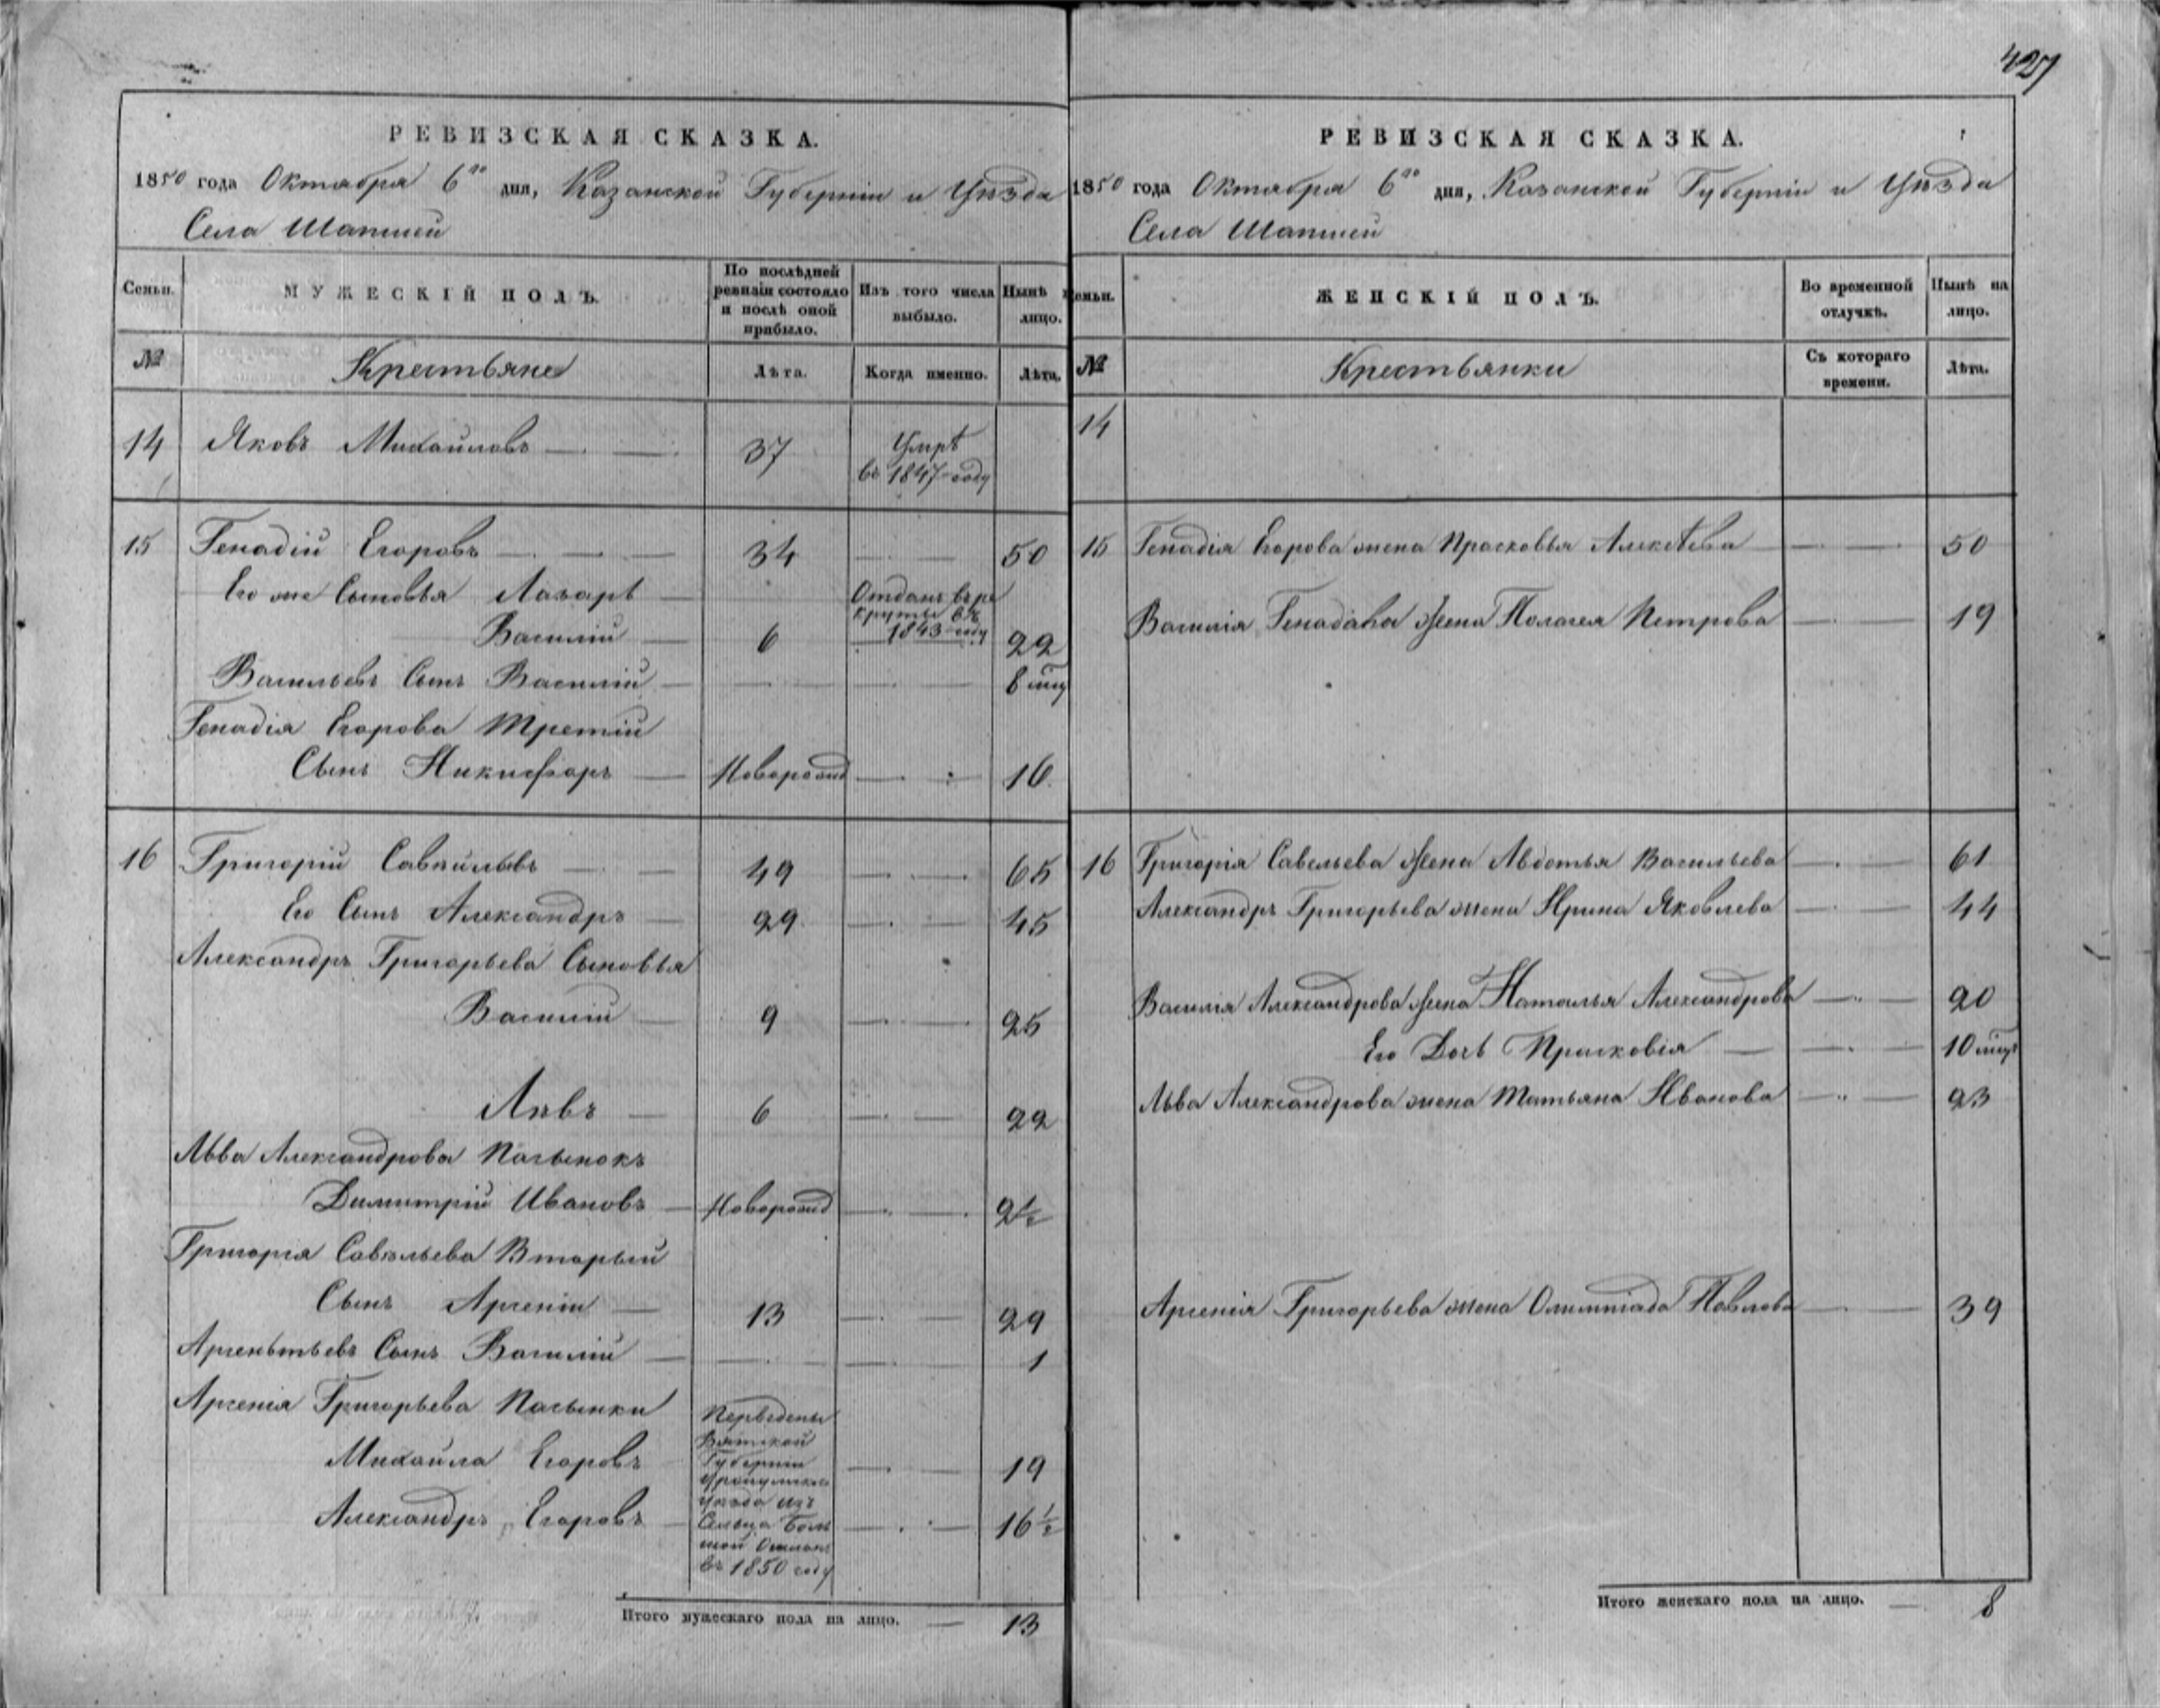 427
РЕВИЗСКАЯ СКАЗКА.
1850 года Октября 6го дня, Казанской Губерніи и Уѣзда
Села Шапшей
Семьи. МУЖЕСКІЙ ПОЛЪ. По послѣдней ревизіи состояло и послѣ оной прибыло. Изъ того числа выбыло. Нынѣ на лицо.
№ Крестьяне Лѣта. Когда именно. Лѣта.
14 Яковъ Михайловъ 37 Умрѣ въ 1847 году
15 Генадій Егоровъ 34 50
Его же Сыновья Лазарь Отданъ въ рекруты въ 1843 году
Василій 6 22
Васильевъ Сынъ Василій 8 мец
Генадія Егорова Третій
Сынъ Никифоръ Новорожд 16
16 Григорій Савѣльевъ 49 65
Его Сынъ Александръ 29 45
Александръ Григорьева Сыновья
Василій 9 25
Лѣвъ 6 22
Льва Александрова Пасынокъ
Димитрій Ивановъ Новорожд 2½
Григорія Савельева Вторый
Сынъ Арсеній 13 29
Арсентьевъ Сынъ Василій 1
Арсенія Григорьева Пасынки
Михайла Егоровъ 19
Александръ Егоровъ 16½
Переведены
Вятской
Губерніи
уѣзда изъ
Сельца Боль
шой
въ 1850 году
Итого мужескаго пола на лицо. 13
РЕВИЗСКАЯ СКАЗКА.
1850 года Октября 6го дня, Казанской Губерніи и Уѣзда
Села Шапшей
Семьи. ЖЕНСКІЙ ПОЛЪ. Во временной отлучкѣ. Нынѣ на лицо.
№ Крестьянки Съ котораго времени. Лѣта.
14
15 Генадія Егорова жена Прасковья Алексѣева 50
Василія Генадіева Жена Полагея Петрова 19
16 Григорія Савельева Жена Авдотья Васильева 61
Александръ Григорьева жена Ирина Яковлева 44
Василія Александрова Жена Наталья Александрова 20
Его Дочь Прасковія 10 мец
Льва Александрова жена Татьяна Иванова 23
Арсенія Григорьева жена Олимпіада Павлова 39
Итого женскаго пола на лицо. 8